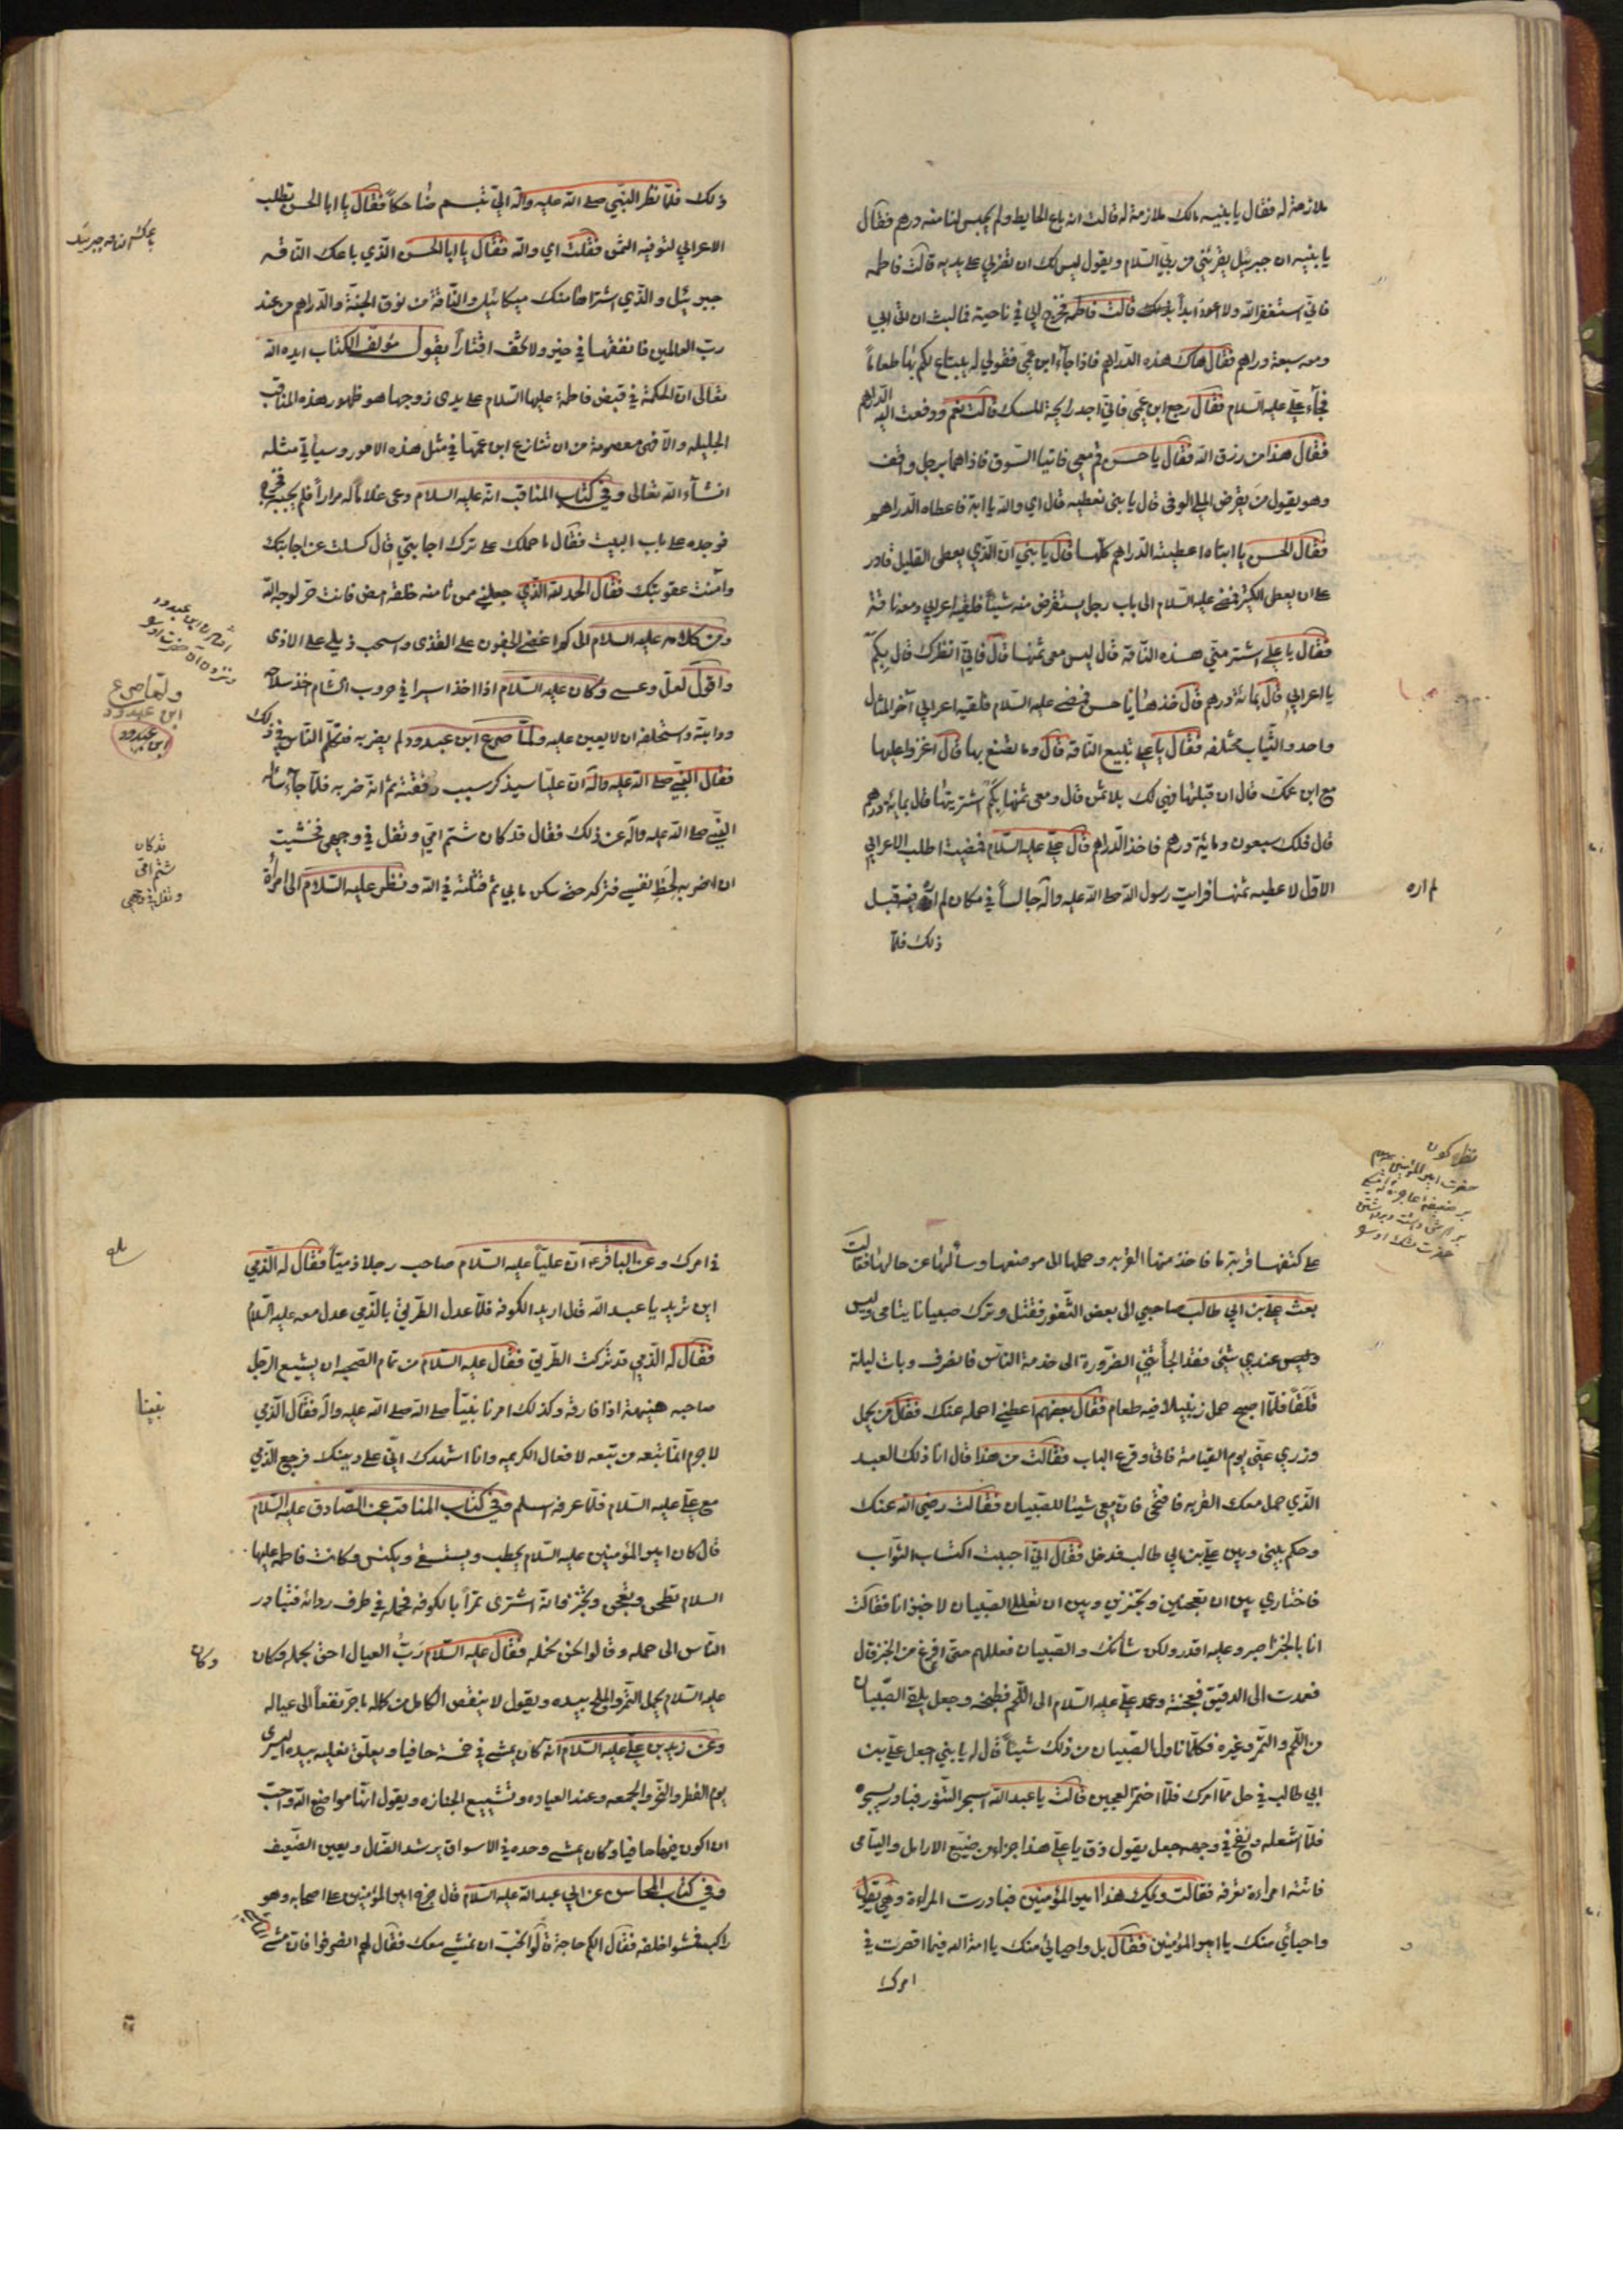 ملازمة له فقال يا بنيه مالك ملازمة له قالت انه باع الحايط ولم يحبس لنا منه درهم فقال
يا بنيه ان جبرئيل يقرئني من ربي السلام ويقول ليس لك ان تضربي على يديه قالت فاطمه
فاني استغفر الله ولا اعود ابداً قالت فاطمه فخرج ابي في ناحية فما لبث ان اتى ابي
ومعه سبعة دراهم فقال هاك هذه الدراهم فاذا جاء ابن عمي فقولي له يبتاع لكم بها طعاماً
فجاء علي عليه السلام فقال رجع ابن عمي فاني اجد رايحة المسك قالت نعم ودفعت اليه الدراهم
فقال هذا من رزق الله فقال يا حسن قم معي فاتيا السوق فاذا هما برجل واقف
وهو يقول من يقرض الملي الوفى قال يا بنى نعطيه قال اي والله يا ابة فاعطاه الدراهم
فقال الحسن يا ابتاه اعطيته الدراهم كلها قال يا بني ان الذي يعطى القليل قادر
على ان يعطى الكثير فمضى عليه السلام الى باب رجل يستقرض منه شيئاً فلقيه اعرابي ومعه ناقة
فقال يا علي اشتر منّي هذه الناقة قال ليس معى ثمنها قال فاني انظرك قال بكم
يا اعرابي قال بمائة درهم قال خذها يا حسن فمضى عليه السلام فلقيه اعرابي آخر المثال
واحد والثياب مختلفه فقال يا علي تبيع الناقة قال وما تصنع بها قال اغزو عليها
مع ابن عمك قال ان قبلتها فهي لك بلا ثمن قال ومعى ثمنها بكم اشتريتها قال بمايه درهم
قال فلك سبعون ومايئة درهم فاخذ الدراهم قال علي عليه السلام فمضيت اطلب الاعرابي
الاول لاعطيه ثمنها فرايت رسول الله صلى الله عليه وآله جالساً في مكان لم اره فيه قبل
لم اره
ذلك فلما
ذلك فلما نظر النبي صلى الله عليه وآله اليّ تبسم ضاحكاً فقال يا ابا الحسن تطلب
الاعرابي لتوفيه الثمن فقلت اي والله فقال يا ابا الحسن الذي باعك الناقه
جبرئيل والذي اشتراها منك ميكائيل والناقة من نوق الجنة والدراهم من عند
رب العالمين فانفقها في خير ولا تخف اقتاراً يقول مؤلف الكتاب ايده الله
تعالى ان الحكمة في قبض فاطمة عليها السلام على يدى زوجها هو ظهور هذه المناقب
الجليله والا فهى معصومة من ان تنازع ابن عمها في مثل هذه الامور وسياتي مثله
انشاء الله تعالى وفي كتاب المناقب انه عليه السلام دعى غلاماً له مراراً فلم يجبه فخرج
فوجده على باب البيت فقال ما حملك على ترك اجابتي قال كسلت عن اجابتك
وامنت عقوبتك فقال الحمد لله الذي جعلني ممن تامنه خلقه امض فانت حر لوجه الله
ومن كلامه عليه السلام الى كم اغضى الجفون على القذى واسحب ذيلي على الاذى
واقول لعل وعسى وكان عليه السلام اذا اخذ اسيرا في حروب الشام اخذ سلاحه
ودابته واستحلفه ان لا يعين عليه ولما صرع ابن عبدود ولم يضربه فتكلم الناس في ذلك
فقال النبي صلى الله عليه وآله ان علياً سيذكر سبب وقفته ثم انه ضربه فلما جاء ساله
النبي صلى الله عليه وآله عن ذلك فقال قد كان شتم امي وتفل في وجهى فخشيت
ان اضربه لحظ نفسي فتركته حتى سكن ما بي ثم قتلته في الله ونظر عليه السلام الى امرأة
ولما صرع
ابن عبدود
ابن عبدود
قد كان
شتم امى
وتفل في وجهى
على كتفها قربة ماء فاخذ منها القربه وحملها الى موضعها وسألها عن حالها فقالت
بعث علي بن ابي طالب صاحبي الى بعض الثغور فقتل وترك صبيانا يتامى وليس
عندي شيئ فقد الجأتني الضرورة الى خدمة الناس فانصرف وبات ليلة
قلقاً فلما اصبح حمل زنبيلا فيه طعام فقال بعضهم اعطني احمله عنك فقال من يحمل
وزري عني يوم القيامة فاتى وقرع الباب فقالت من هذا قال انا ذلك العبد
الذي حمل معك القربه فافتحى فان معي شيئا للصبيان فقالت رضى الله عنك
وحكم بيني وبين علي بن ابي طالب فدخل فقال اني احببت اكتساب الثواب
فاختاري بين ان تعجنين وتخبزين وبين ان تعللي الصبيان لاخبز انا فقالت
انا بالخبز ابصر وعليه اقدر ولكن شأنك والصبيان فعللهم حتى افرغ من الخبز قال
فعمدت الى الدقيق فعجنته وعمد علي عليه السلام الى اللحم فطبخه وجعل يلقم الصبيان
من اللحم والتمر وغيره فكلما ناول الصبيان من ذلك شيئاً قال له يا بني اجعل علي بن
ابي طالب في حل مما امرك فلما اختمر العجين قالت يا عبدالله اسجر التنور فبادر يسجره
فلما اشعله ونفخ في وجهه جعل يقول ذق يا علي هذا جزاء من ضيع الارامل واليتامى
فاتته امراءة تعرفه فقالت ويحك هذا امير المؤمنين فبادرت المراءة وهي تقول
واحيائي منك يا امير المؤمنين فقال بل واحيائي منك يا امة الله فيما اقصرت في
امرك
في امرك وعن الباقر ع ان علياً عليه السلام صاحب رجلا ذمياً فقال له الذمي
اين تريد يا عبد الله قال اريد الكوفه فلما عدل الطريق بالذمي عدل معه عليه السلام
فقال له الذمي قد تركت الطريق فقال عليه السلام من تمام الصحبه ان يشيع الرجل
صاحبه هنيهة اذا فارقه وكذلك امرنا نبينا صلى الله عليه وآله فقال الذمي
نبينا
لا جرم انما تبعه من تبعه لافعال الكريمه وانا اشهدك اني على دينك فرجع الذمي
مع علي عليه السلام فلما عرفه اسلم وفي كتاب المناقب عن الصادق عليه السلام
قال كان امير المؤمنين عليه السلام يحطب ويستسقى ويكنس وكانت فاطمه عليها
السلام تطحن وتعجن وتخبز وانه اشترى تمراً بالكوفه فحمله في طرف ردائه فتبادر
الناس الى حمله وقالوا نحن نحمله فقال عليه السلام رب العيال احق بحمله وكان
وكان
عليه السلام يحمل التمر والملح بيده ويقول لا ينقص الكامل من كماله ما جر نفعاً الى عياله
وعن زيد بن علي عليه السلام انه كان يمشي في خمسة حافيا ويعلق نعليه بيده اليسرى
يوم الفطر والنحر والجمعه وعند العياده وتشييع الجنازه ويقول انها مواضع الله واحب
ان اكون فيها حافيا وكان يمشي وحده في الاسواق يرشد الضال ويعين الضعيف
وفي كتاب المحاسن عن ابي عبدالله عليه السلام قال خرج امير المؤمنين على اصحابه وهو
راكب فمشوا خلفه فقال الكم حاجة قالوا نحب ان نمشي معك فقال لهم انصرفوا فان مشى